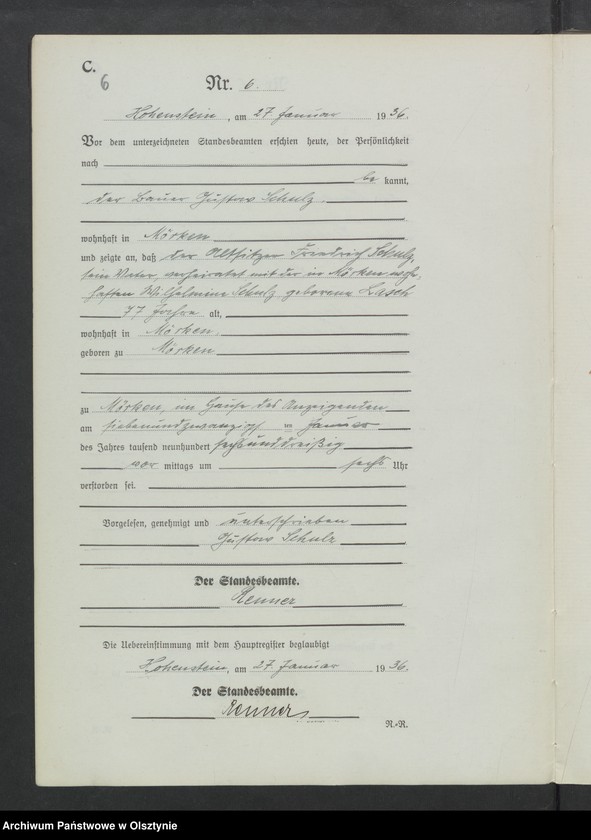 C.
6
Nr. 6.
Hohenstein, am 27. Januar 1936.
Vor dem unterzeichneten Standesbeamten erschien heute, der Persönlichkeit
nach
be kannt,
der Bauer Gustav Schulz
wohnhaft in Mörken
und zeigte an, daß der Altsitzer Friedrich Schulz,
sein Vater, verheiratet mit der in Mörken wohn-
haften Wilhelmine Schulz geborene Lasch
77 Jahre alt,
wohnhaft in Mörken,
geboren zu Mörken
zu Mörken, im Hause des Anzeigenden
am siebenundzwanzigsten Januar
des Jahres tausend neunhundert sechsunddreißig
vor mittags um sechs Uhr
verstorben sei.
Vorgelesen, genehmigt und unterschrieben
Gustav Schulz
Der Standesbeamte.
Renner
Die Uebereinstimmung mit dem Hauptregister beglaubigt
Hohenstein, am 27. Januar 1936.
Der Standesbeamte.
Renner
R.-R.
Archiwum Państwowe w Olsztynie